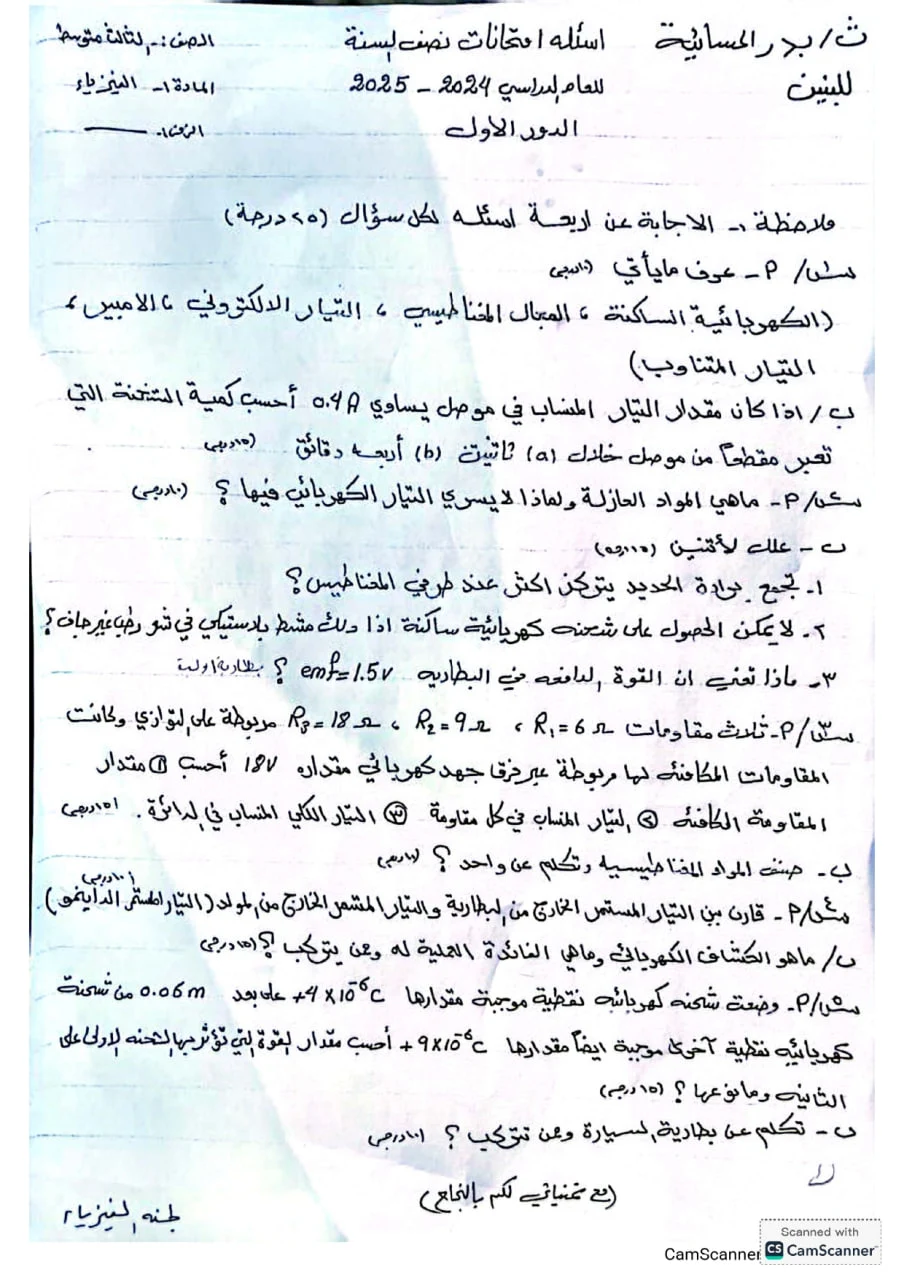 ث/ بدر المسائية اسئله امتحانات نصف السنة الصف:- الثالث متوسط
للبنين للعام الدراسي 2024 - 2025 المادة:- الفيزياء
الدور الاول الزمن:-
ملاحظة :- الاجابة عن اربعة اسئله لكل سؤال (٢٥ درجة)
س١/ P - عرف مايأتي (١٠درجة)
(الكهربائية الساكنة ، المجال المغناطيسي ، التيار الالكتروني ، الامبير ،
التيار المتناوب)
ب/ اذا كان مقدار التيار المنساب في موصل يساوي 0.4A أحسب كمية الشحنة التي
تعبر مقطعاً من موصل خلال (a) ثانيتين (b) أربعه دقائق (١٥درجة)
س٢/ P- ماهي المواد العازلة ولماذا لا يسري التيار الكهربائي فيها ؟ (١٠درجة)
ب - علل لأثنين (١٥درجه)
١- تجمع برادة الحديد يتركز اكثر عند طرفي المغناطيس ؟
٢- لا يمكن الحصول على شحنه كهربائية ساكنة اذا دلك مشط بلاستيكي في شعر رطب غير جاف ؟
٣- ماذا تعني ان القوة الدافعه في البطاريه emf=1.5v ؟ بطارية اولية
س٣/ P- ثلاث مقاومات R₁=6Ω ، R₂=9Ω ، R₃=18Ω مربوطة على التوازي وكانت
المقاومات المكافئه لها مربوطة عبر فرق جهد كهربائي مقداره 18V أحسب ① مقدار
المقاومة المكافئه ② التيار المنساب في كل مقاومة ③ التيار الكلي المنساب في الدائرة . (١٥درجة)
ب- صنف المواد المغناطيسيه وتكلم عن واحد ؟ (١٠درجة)
س٤/ P- قارن بين التيار المستمر الخارج من البطارية والتيار المستمر الخارج من المولد (التيار المستمر الداينمو) (١٠درجة)
ب/ ماهو الكشاف الكهربائي وماهي الفائدة العملية له وممن يتركب ؟ (١٥درجة)
س٥/ P- وضعت شحنه كهربائيه نقطية موجبة مقدارها +4×10⁻⁶C على بعد 0.06m من شحنة
كهربائيه نقطية أخرى موجبة ايضاً مقدارها +9×10⁻⁶C أحسب مقدار القوة التي تؤثر بها الشحنه الاولى على
الثانيه وما نوعها ؟ (١٥درجة)
ب- تكلم عن بطارية السيارة وممن تتركب ؟ (١٠درجة)
(مع تمنياتي لكم بالنجاح)
لجنه الفيزياء
Scanned with
CS CamScanner
CamScanner